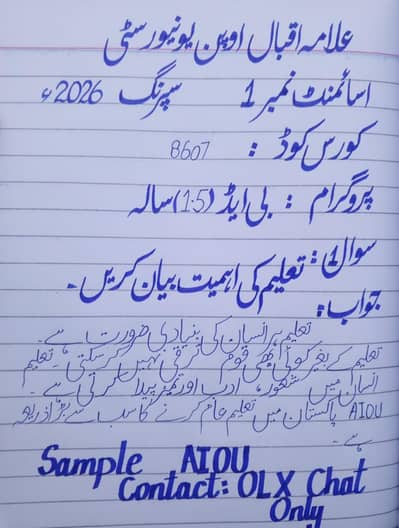 علامہ اقبال اوپن یونیورسٹی
اسائمنٹ نمبر 1 سپرنگ 2026ء
کورس کوڈ : 8607
پروگرام : بی ایڈ (1.5) سالہ
سوال 1: تعلیم کی اہمیت بیان کریں۔
جواب:
تعلیم ہر انسان کی بنیادی ضرورت ہے۔
تعلیم کے بغیر کوئی بھی قوم ترقی نہیں کر سکتی ہے۔ تعلیم
انسان میں شعور، ادب اور تمیز پیدا کرتی ہے۔
AIOU پاکستان میں تعلیم عام کرنے کا سب سے بڑا ذریعہ
ہے۔
Sample AIOU
Contact: OLX Chat
Only